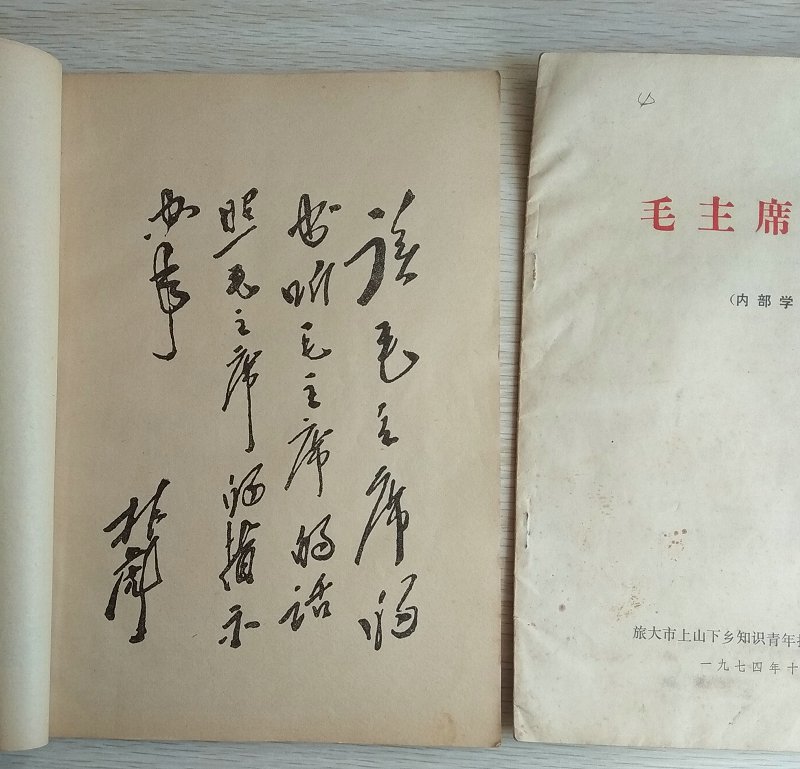 读毛主席的
书听毛主席的话
照毛主席的指示
办事
林彪
毛主席
（内部学
旅大市上山下乡知识青年
一九七四年十